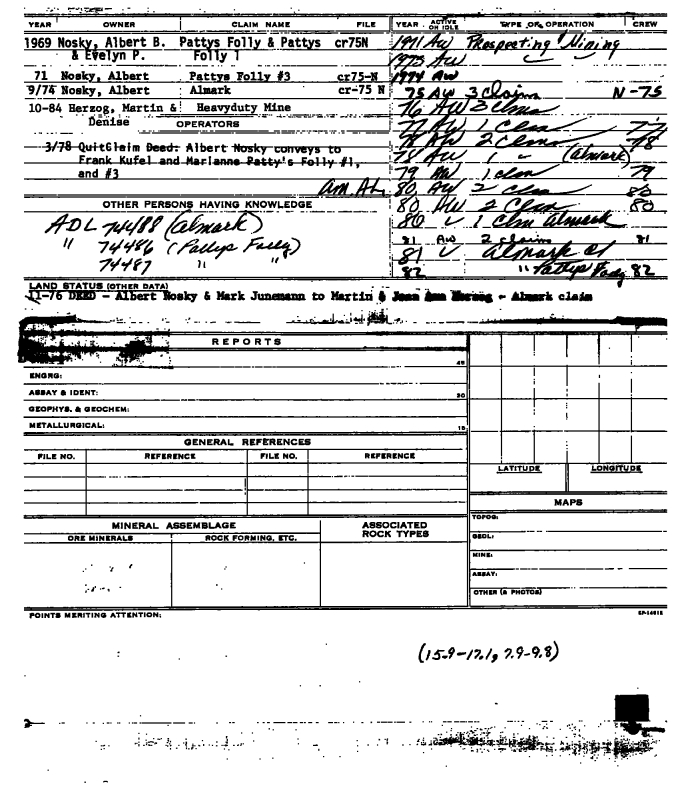 YEAR OWNER CLAIM NAME FILE
1969 Nosky, Albert B. Pattys Folly & Pattys cr75N
& Evelyn P. Folly 1
71 Nosky, Albert Pattys Folly #3 cr75-N
9/74 Nosky, Albert Almark cr-75 N
10-84 Herzog, Martin & Heavyduty Mine
Denise
OPERATORS
3/78 QuitClaim Deed: Albert Nosky conveys to
Frank Kufel and Marianne Patty's Folly #1,
and #3
OTHER PERSONS HAVING KNOWLEDGE
ADL 74488 (Almark)
" 74486 (Pattys Folly)
74487 " "
YEAR ACTIVE OR IDLE TYPE OF OPERATION CREW
1971 AW Prospecting & Mining
1973 AW
1974 AW
75 AW 3 Claims N-75
76 AW 3 Clms
77 AW 1 Clm 77
78 AW 2 Clms 78
78 AW 1 " (Almark)
79 AW 1 clm 79
80 AW 2 Clms 80
80 AW 2 Clms 80
80 " 1 Clm Almark
81 AW 2 claims 81
81 " Almark Cl
82 " Pattys Folly 82
LAND STATUS (OTHER DATA)
11-76 DEED - Albert Nosky & Mark Junemann to Martin & Jean Ann Herzog - Almark claim
REPORTS
45
ENGRG:
ASSAY & IDENT:
30
GEOPHYS. & GEOCHEM:
METALLURGICAL:
15
GENERAL REFERENCES
FILE NO. REFERENCE FILE NO. REFERENCE
LATITUDE LONGITUDE
MAPS
TOPOG:
GEOL:
MINE:
ASSAY:
OTHER (& PHOTOS)
MINERAL ASSEMBLAGE
ORE MINERALS ROCK FORMING, ETC.
ASSOCIATED
ROCK TYPES
POINTS MERITING ATTENTION:
(15.9-17.1, 7.9-9.8)